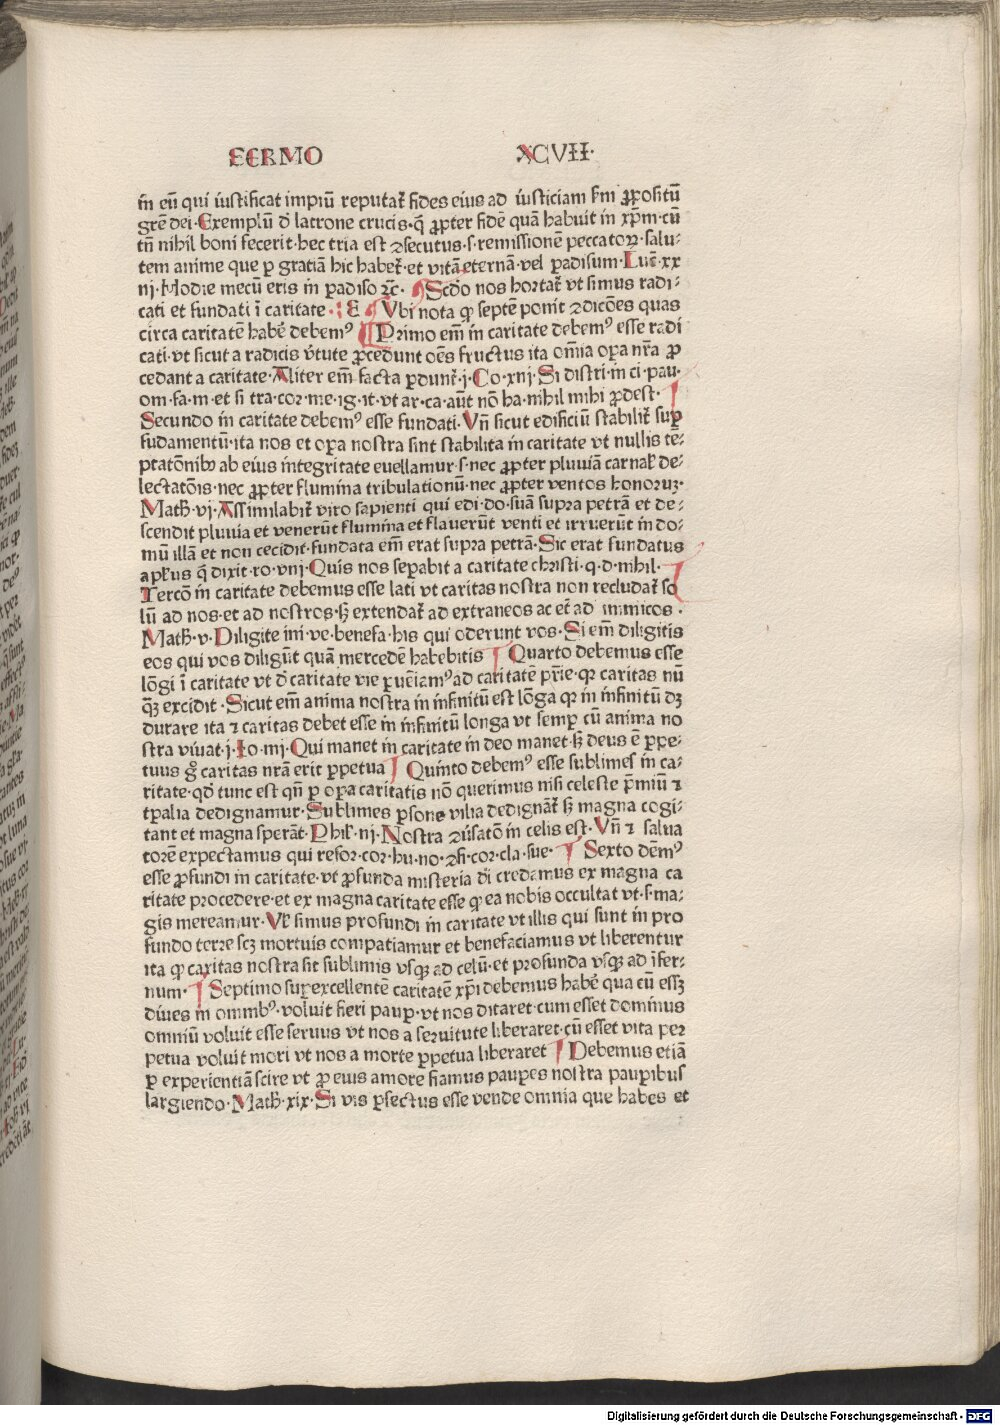 SERMO XCVII·
in eū qui iustificat impiū reputat̄ fides eius ad iusticiam scd̄m ꝓpositū
gr̄e dei·Exemplū d̄ latrone crucis·q̄ ꝓpter fidē quā habuit in xp̄m·cū
tn̄ nihil boni fecerit·hec tria est ꝯsecutus·s·remissionē peccatoꝝ·salu-
tem anime que ꝑ gratiā hic habet̄·et vitā eternā·vel ꝑadisum·Luc̄·xx
iij·Hodie mecū eris in ꝑadiso ⁊c̄· Scd̄o nos hortat̄ vt simus radi-
cati et fundati ī caritate·:E Ubi nota ꝙ septē ponit ꝯdicōes quas
circa caritatē habē debemꝰ Primo em̄ in caritate debemꝰ esse radi
cati·vt sicut a radicis v̄tute ꝓcedunt oēs fructus ita om̄ia oꝑa nr̄a ꝓ
cedant a caritate·Aliter em̄ facta ꝑdunt̄·j·Co·xiij·Si distri·in ci·pau·
om·fa·m·et si tra·cor·me·ig·it·vt ar·ca·aūt nō ha·nihil mihi ꝓdest·
Secundo in caritate debemꝰ esse fundati·Vn̄ sicut edificiū stabilit̄ suꝑ
fūdamentū·ita nos et oꝑa nostra sint stabilita in caritate vt nullis tē-
ptatōnibꝰ ab eius integritate euellamur·s·nec ꝓpter pluuiā carnal̄ de-
lectatōis·nec ꝓpter flumina tribulationū·nec ꝓpter ventos honoruꝫ·
Math̄·vij·Assimilabit̄ viro sapienti qui edi·do·suā supra petrā et de-
scendit pluuia et venerūt flumina et flauerūt venti et irruerūt in do-
mū illā et non cecidit·fundata em̄ erat supra petrā·Sic erat fundatus
apl̄us q̄ dixit·ro·viij·Quis nos seꝑabit a caritate christi·q·d·nihil·
Tercō in caritate debemus esse lati vt caritas nostra non recludat̄ so
lū ad nos·et ad nostros·sꝫ extendat̄ ad extraneos ac et̄ ad inimicos·
Math̄·v·Diligite ini·ve·benefa·his qui oderunt vos·Si em̄ diligitis
eos qui vos diligūt quā mercedē habebitis Quarto debemus esse
lōgi ī caritate vt d̄ caritate vie ꝑuēiamꝰ ad caritatē pr̄ie·qꝛ caritas nū
q̄ꝫ excidit·Sicut em̄ anima nostra in infinitū est lōga qꝛ in infinitū dꝫ
durare ita ⁊ caritas debet esse in infinitū longa vt semꝑ cū anima no
stra viuat·j·Io·iiij·Qui manet in caritate in deo manet·sꝫ deus ē ꝑpe-
tuus gͦ caritas nr̄a erit ꝑpetua Quinto debemꝰ esse sublimes in ca-
ritate·qd̄ tunc est qn̄ ꝑ oꝑa caritatis nō querimus nisi celeste p̄miū ⁊
tꝑalia dedignamur·Sublimes ꝑsone vilia dedignāt̄ sꝫ magna cogi-
tant et magna sperāt·Phil̄·iij·Nostra ꝯūsatō in celis est·Vn̄ ⁊ salua
torē expectamus qui refor·cor·hu·no·ꝯfi·cor·cla·sue· Sexto dēmꝰ
esse ꝓfundi in caritate·vt ꝓfunda misteria dī credamus ex magna ca
ritate procedere·et ex magna caritate esse ꝙ ea nobis occultat vt·s·ma-
gis mereamur·Vl̄ simus profundi in caritate vt illis qui sunt in pro
fundo terre scꝫ mortuis compatiamur et benefaciamus vt liberentur
ita ꝙ caritas nostra sit sublimis vsqꝫ ad celū·et profunda vsqꝫ ad īfer-
num· Septimo suꝑexcellentē caritatē xp̄i debemus habē qua cū essꝫ
diues in omnibꝰ·voluit fieri pauꝑ·vt nos ditaret·cum esset dominus
omniū voluit esse seruus vt nos a seruitute liberaret·cū esset vita per
petua voluit mori vt nos a morte ꝑpetua liberaret Debemus etiā
ꝑ experientiā scire vt ꝓ euis amore fiamus pauꝑes nostra pauꝑibus
largiendo·Math̄·xix·Si vis ꝑfectus esse vende omnia que habes et
Digitalisierung gefördert durch die Deutsche Forschungsgemeinschaft - DFG